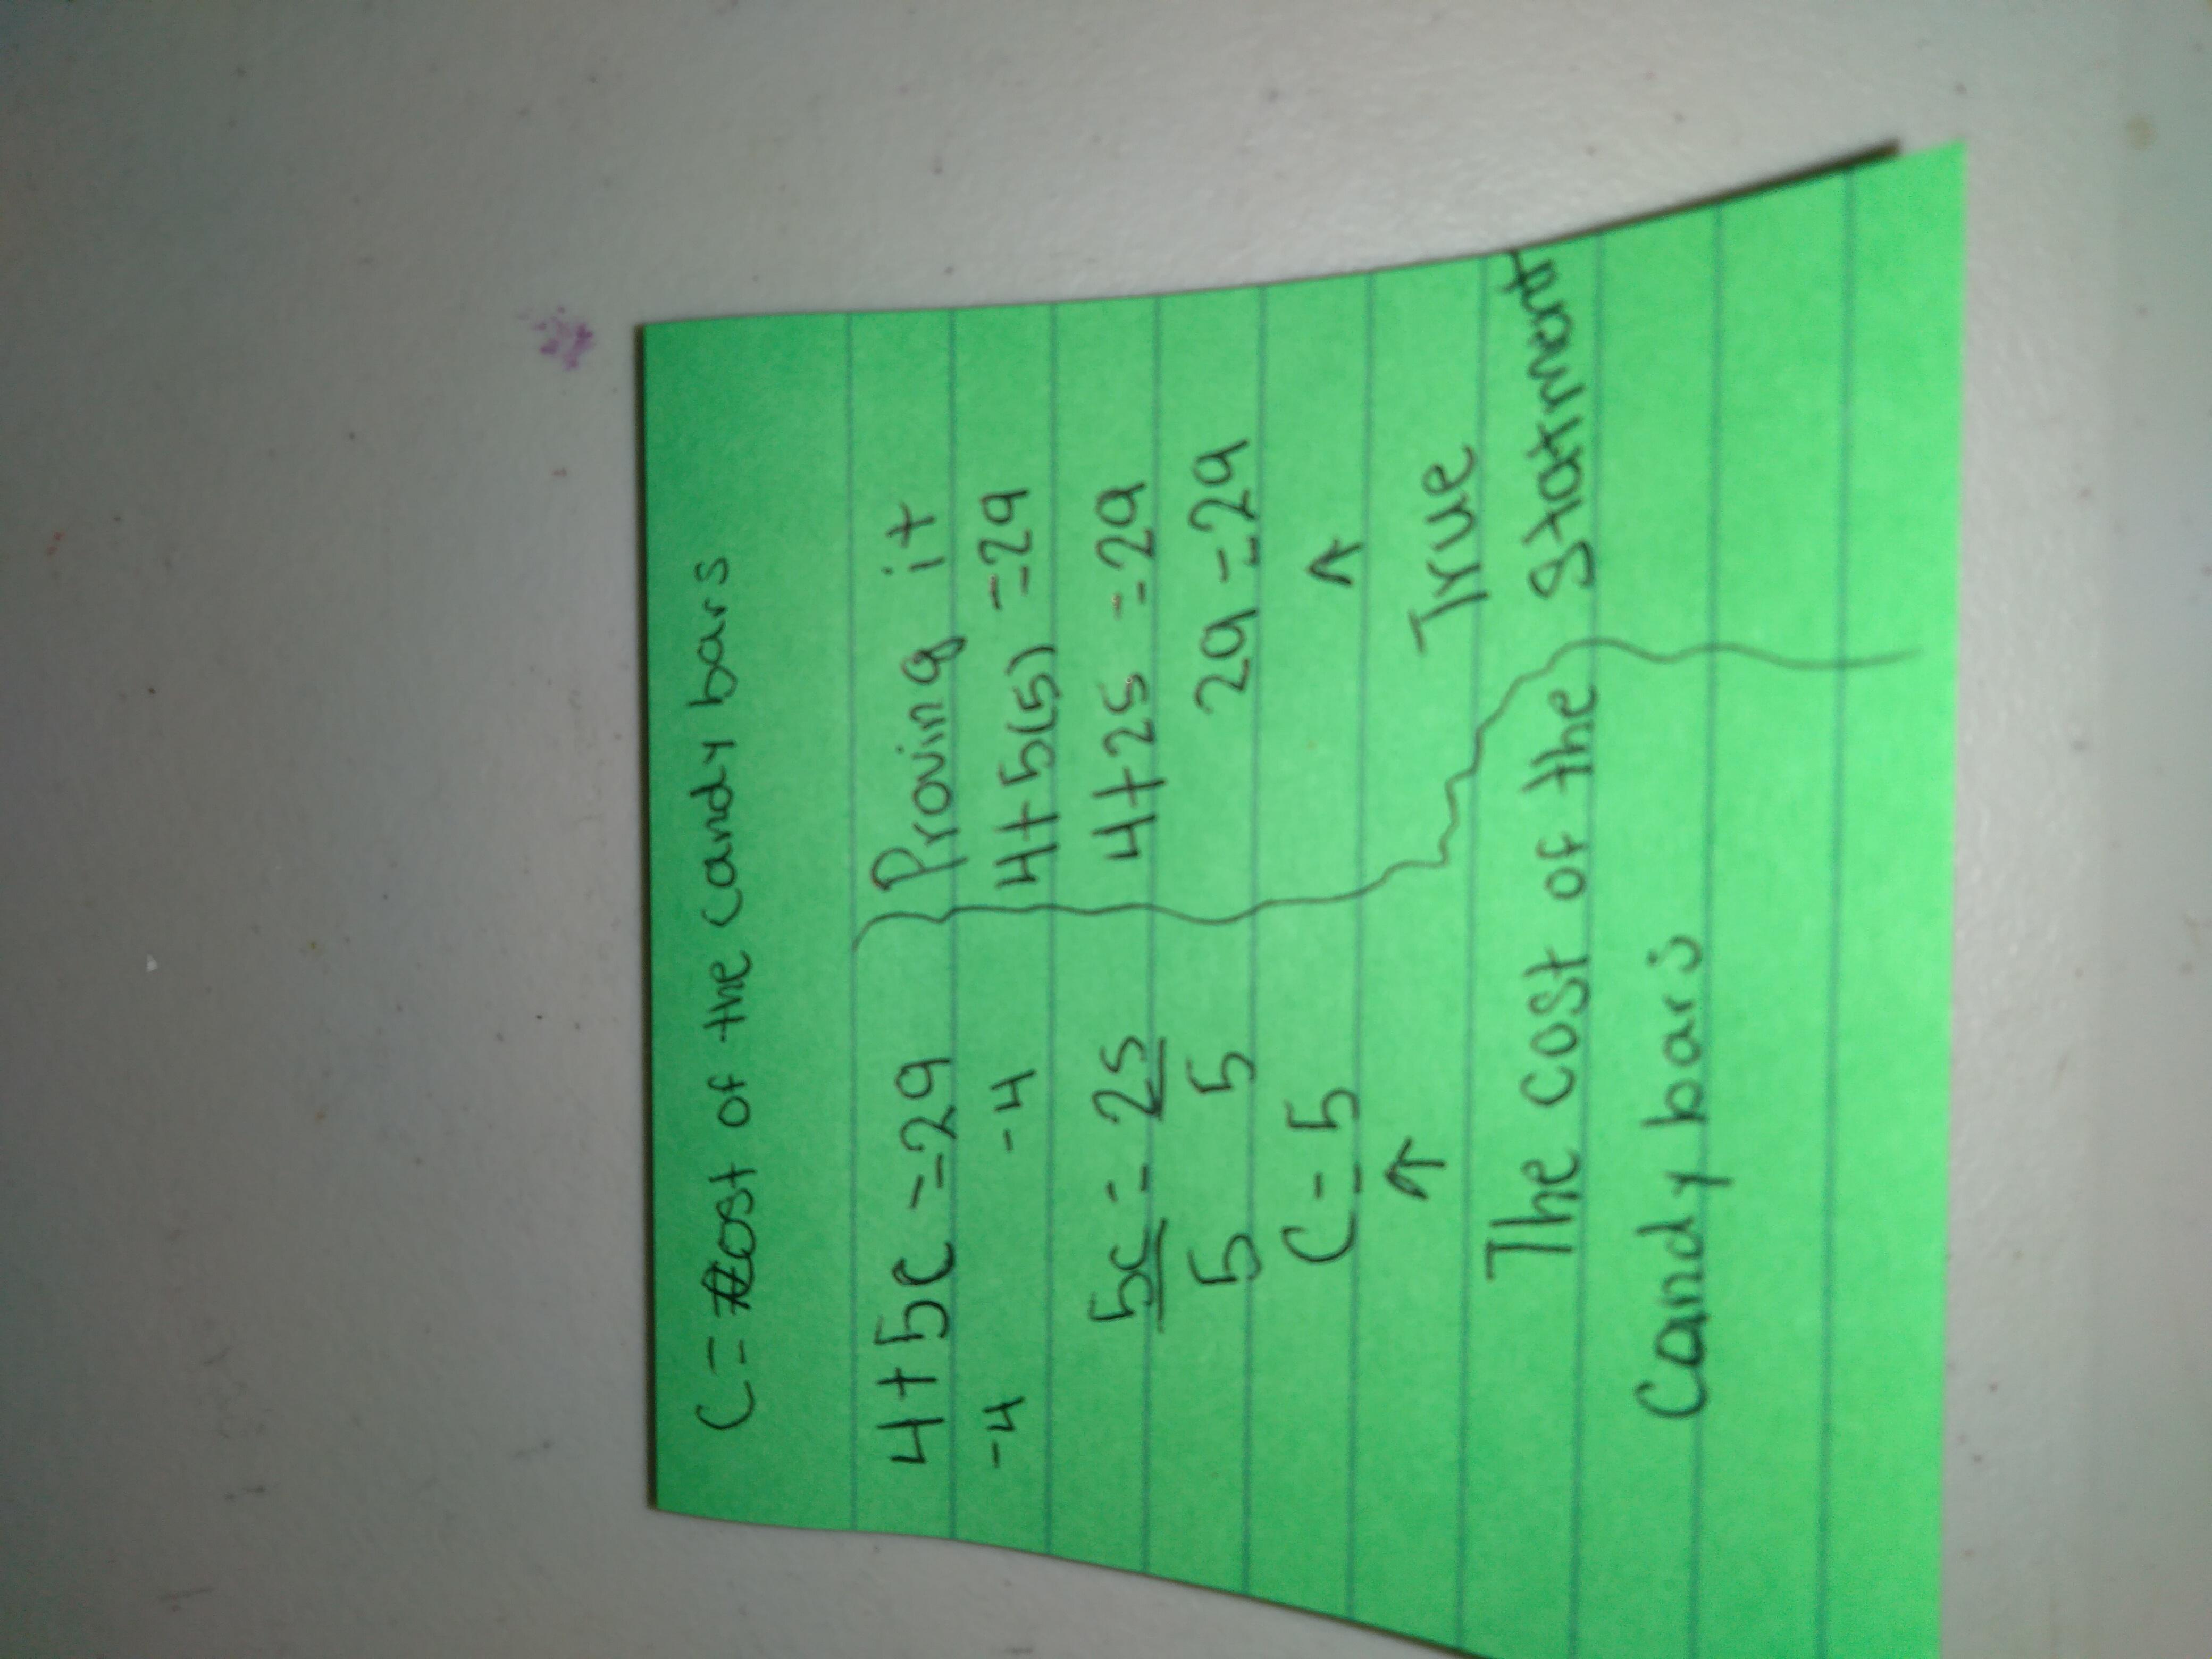 C = cost of the candy bars
4+5c=29
-4 -4
5c = 25
5 5
C=5
↑
The cost of the
Candy bars
Proving it
4+5(5) =29
4+25 =29
29=29
↑
True
Statment